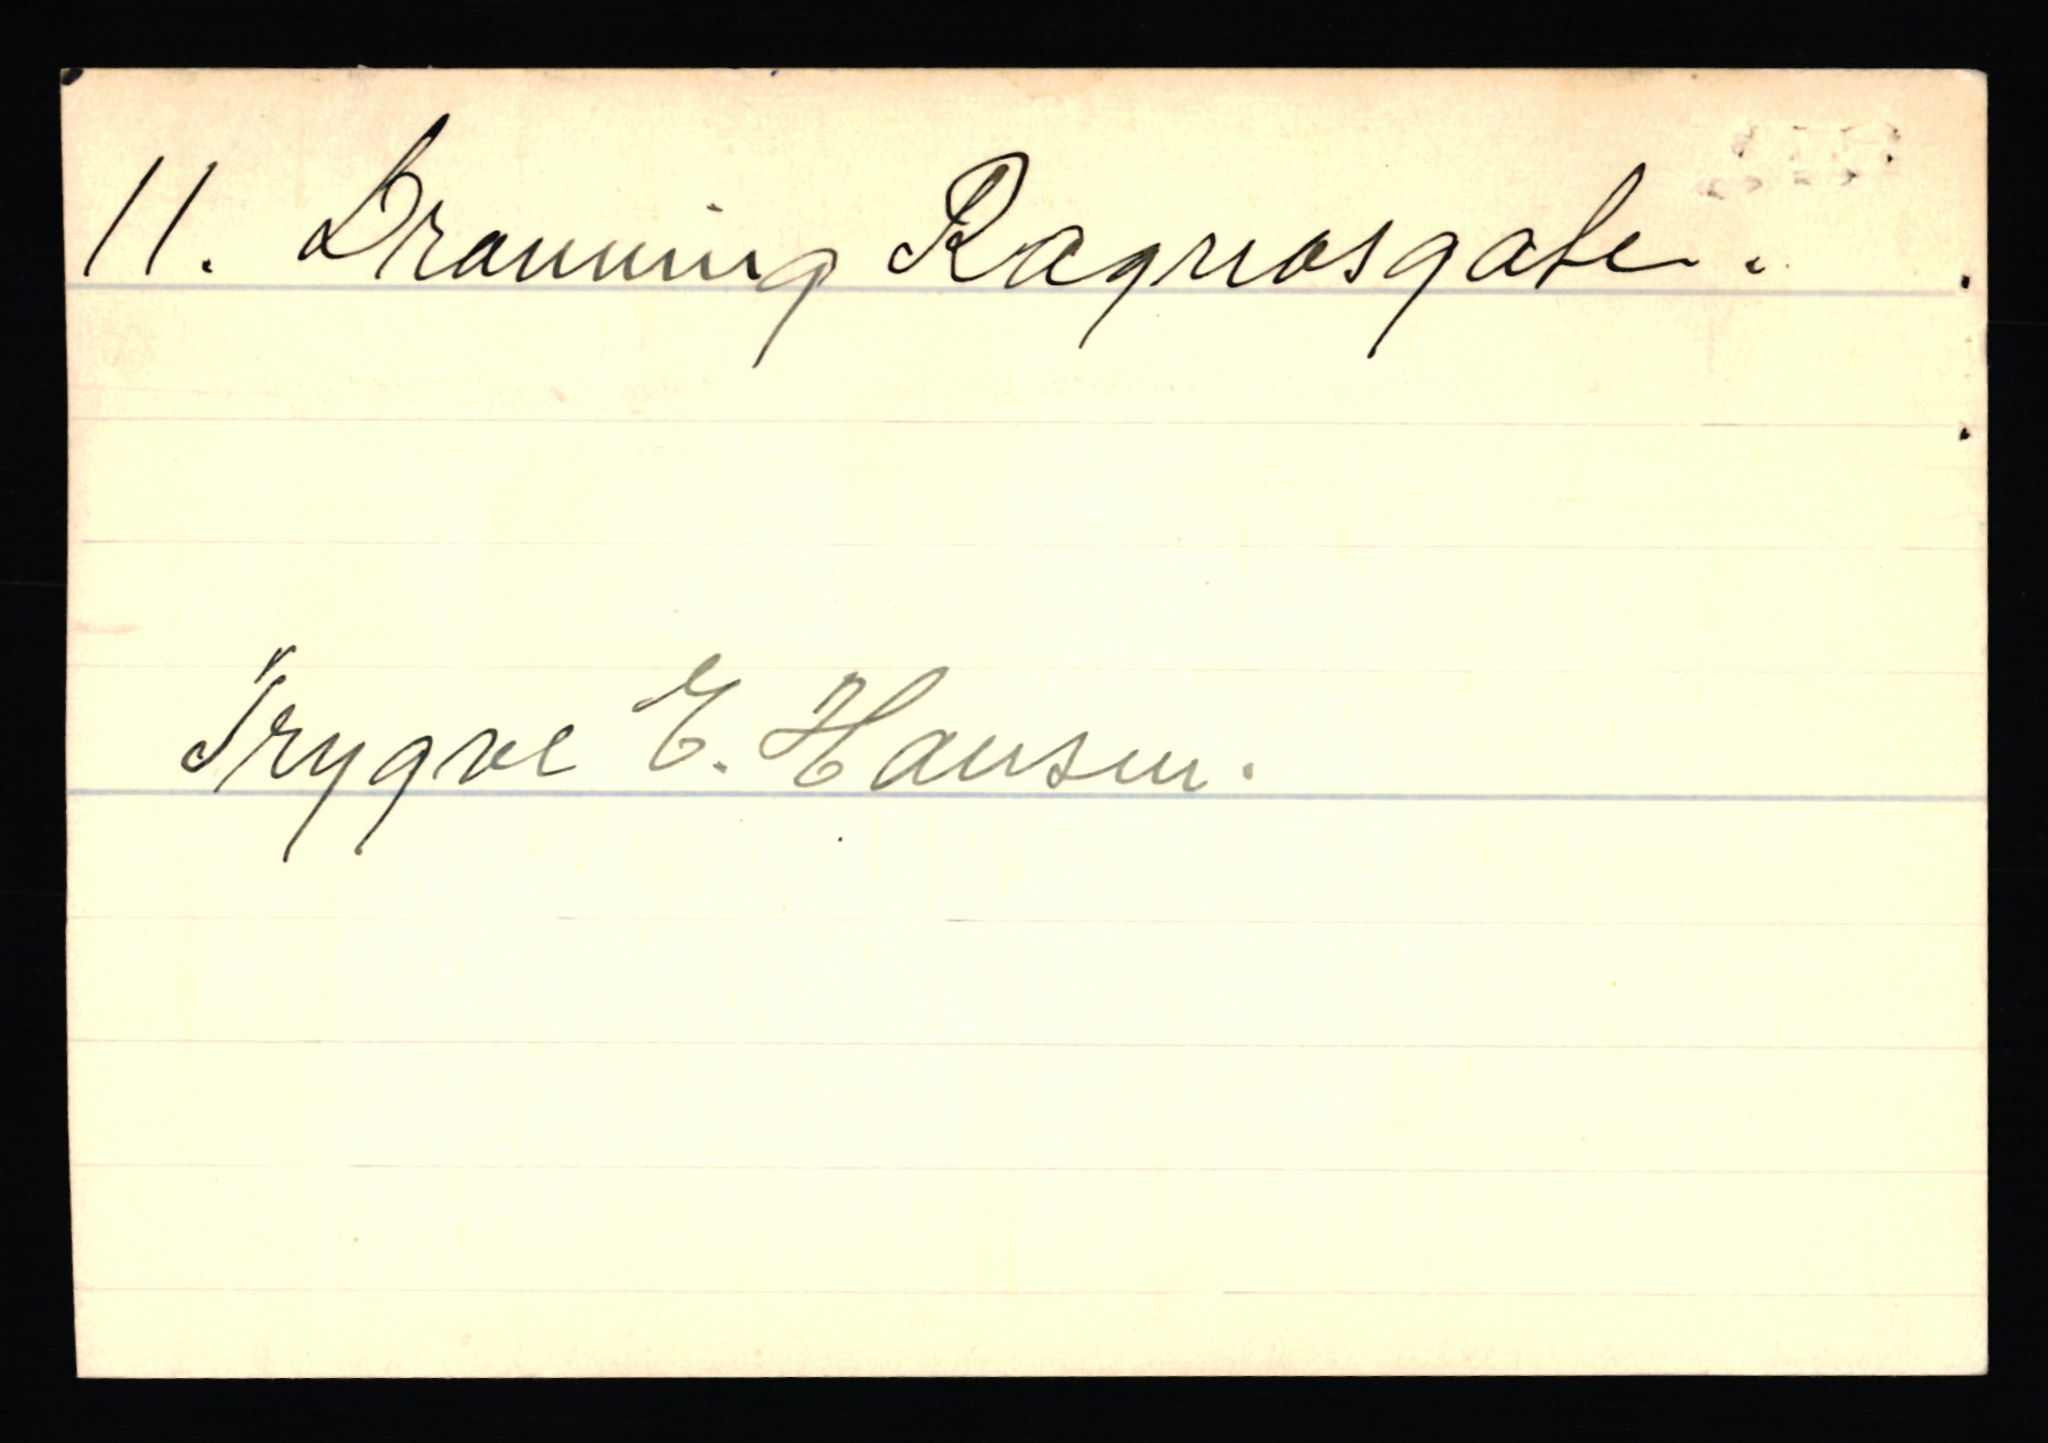 11. Dronning Ragnasgate.
Trygve E. Hansen.